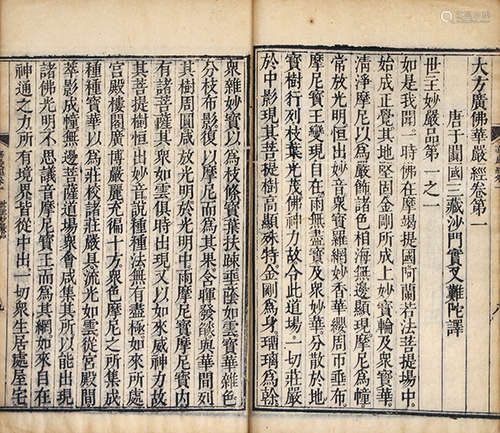 大方廣佛華嚴經卷第一
唐于闐國三藏沙門實叉難陀譯
世主妙嚴品第一之一
如是我聞一時佛在摩竭提國阿蘭若法菩提場中
始成正覺其地堅固金剛所成上妙寶輪及眾寶華
清淨摩尼以為嚴飾諸色相海無邊顯現摩尼為幢
常放光明恒出妙音眾寶羅網妙香華纓周帀垂布
摩尼寶王變現自在雨無盡寶及眾妙華分散於地
寶樹行列枝葉光茂佛神力故令此道場一切莊嚴
於中影現其菩提樹高顯殊特金剛為身瑠璃為幹
眾雜妙寶以為枝條寶葉扶疎垂蔭如雲寶華雜色
分枝布影復以摩尼而為其果含暉發燄與華間列
其樹周圓咸放光明於光明中雨摩尼寶摩尼寶內
有諸菩薩其眾如雲俱時出現又以如來威神力故
其菩提樹恒出妙音說種種法無有盡極如來所處
宮殿樓閣廣博嚴麗充徧十方眾色摩尼之所集成
種種寶華以為莊校諸莊嚴具流光如雲從宮殿間
萃影成幢無邊菩薩道場眾會咸集其所以能出現
諸佛光明不思議音摩尼寶王而為其網如來自在
神通之力所有境界皆從中出一切眾生居處屋宅